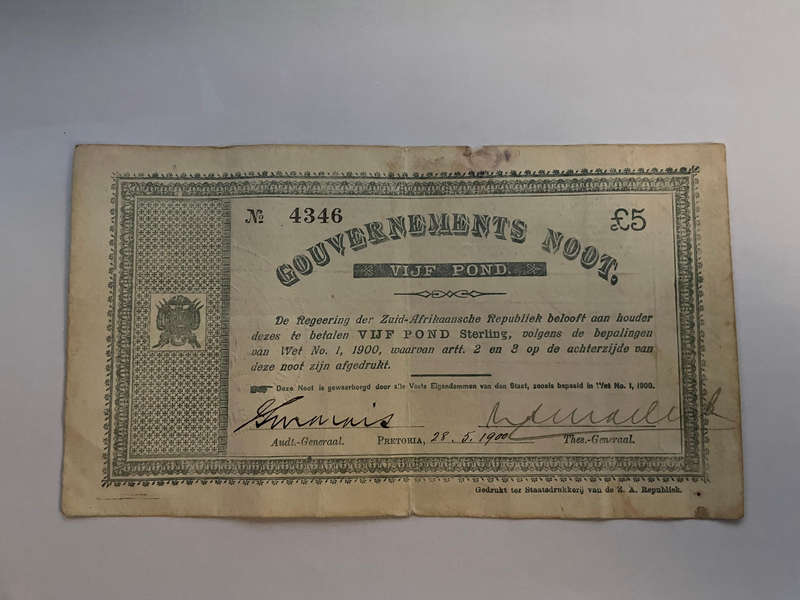 № 4346
£5
GOUVERNEMENTS NOOT.
VIJF POND.
De Regeering der Zuid-Afrikaansche Republiek belooft aan houder
dezes te betalen VIJF POND Sterling, volgens de bepalingen
van Wet No. 1, 1900, waarvan artt. 2 en 3 op de achterzijde van
deze noot zijn afgedrukt.
Deze Noot is gewaarborgd door alle Vaste Eigendommen van den Staat, zooals bepaald in Wet No. 1, 1900.
Audt.-Generaal. PRETORIA, 28. 5. 1900 Thes.-Generaal.
Gedrukt ter Staatsdrukkerij van de Z. A. Republiek.